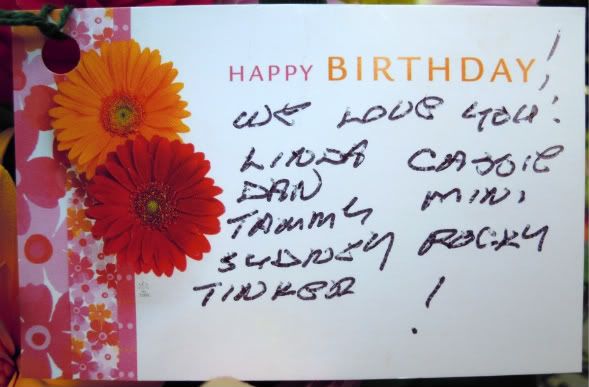 HAPPY BIRTHDAY!
WE LOVE YOU!
LINDA CASSIE
DAN MINI
TAMMY
SYDNEY ROCKY
TINKER !